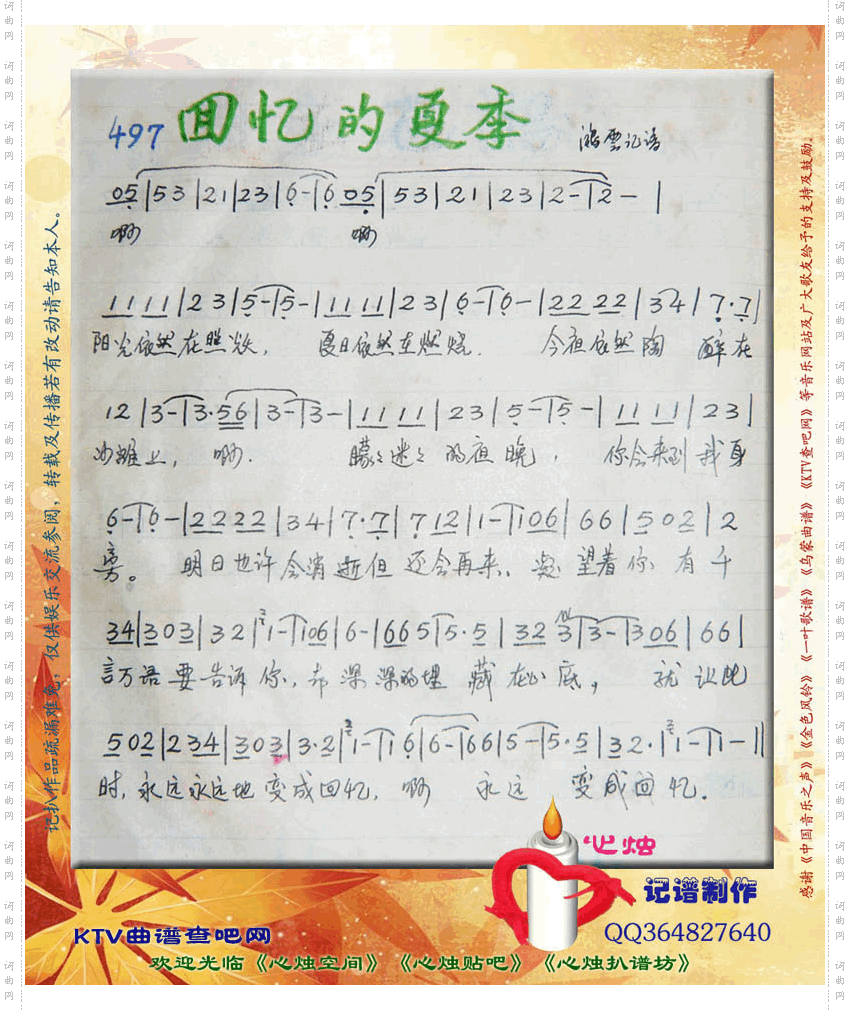 497 回忆的夏季 鸿云记谱
05|53|21|23|6-|6 05|53|21|23|2-|2-|
啊 啊
11 11|23|5-|5-|11 11|23|6-|6-|22 22|34|7·7|
阳光依然在照耀, 夏日依然在燃烧. 今夜依然陶醉在
12|3-|3·56|3-|3-|11 11|23|5-|5-|11 11|23|
沙滩上, 啊. 朦朦迷迷的夜晚, 你会来到我身
6-|6-|22 22|34|7·7|7 12|1-|106|66|502|2
旁。 明日也许会消逝但还会再来、凝望着你 有千
34|303|32|1-|106|6-|66 5|5·5|32 3|3-|306|66|
言万语要告诉你, 却深深的埋藏在心底, 就让此
502|234|303|3·2|1-|1 6|6-|66|5-|5·5|32·|1-|1-||
时, 永远永远地变成回忆, 啊 永远 变成回忆.
记扒作品疏漏难免，仅供娱乐交流参阅，转载及传播若有改动请告知本人。
感谢《中国音乐之声》《金色风铃》《一叶歌谱》《乌蒙曲谱》《KTV查吧网》等音乐网站及广大歌友给予的支持及鼓励.
心烛
记谱制作
KTV曲谱查吧网
QQ364827640
欢迎光临《心烛空间》《心烛贴吧》《心烛扒谱坊》
词曲网